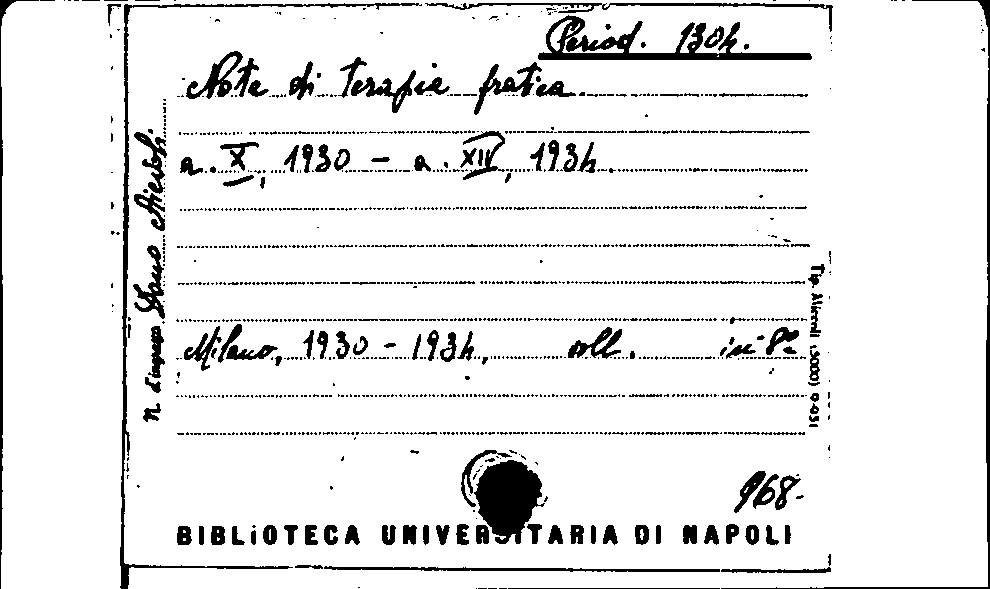 Period. 1304.
Note di terapia pratica.
a. X, 1930 - a. XIV, 1934.
Milano, 1930 - 1934, voll. in-8º
968-
BIBLIOTECA UNIVERSITARIA DI NAPOLI
N. d'ingresso Dono
Tip. (5000) 9-931